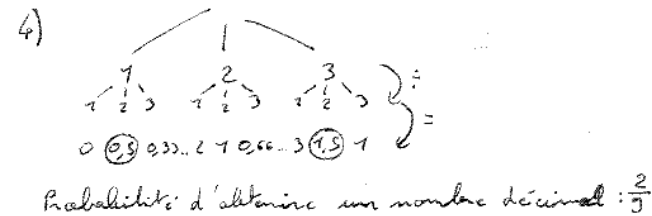 4)
1 2 3 ÷
1 2 3 1 2 3 1 2 3 =
0 0,5 0,33.. 2 1 0,66.. 3 1,5 1
Probabilité d'obtenire un nombre décimal : 2/9